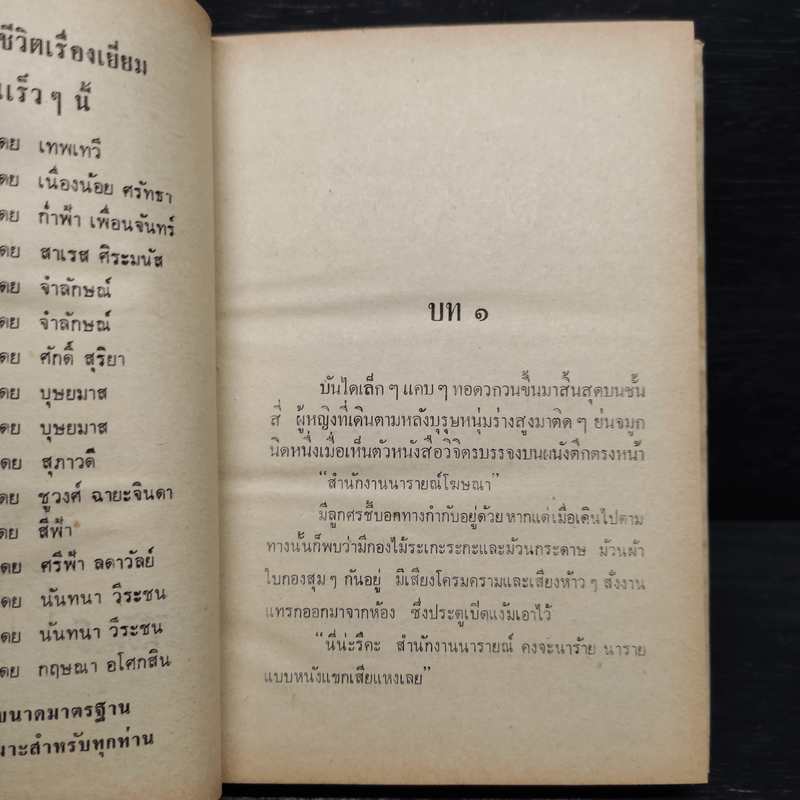 ชีวิตเรื่องเยี่ยม
เร็ว ๆ นี้
เทพเทวี
เนื่องน้อย ศรัทธา
ก่ำฟ้า เพื่อนจันทร์
สาเรส ศิระมนัส
จำลักษณ์
จำลักษณ์
ศักดิ์ สุริยา
บุษยมาส
บุษยมาส
สุภาวดี
ชูวงศ์ ฉายะจินดา
สีฟ้า
ศรีฟ้า ลดาวัลย์
นันทนา วีระชน
นันทนา วีระชน
กฤษณา อโศกสิน
ขนาดมาตรฐาน
สำหรับทุกท่าน
บท ๑
บันไดเล็ก ๆ แคบ ๆ ทอดวกวนขึ้นมาสิ้นสุดบนชั้น
สี่ ผู้หญิงที่เดินตามหลังบุรุษหนุ่มร่างสูงมาติด ๆ ย่นจมูก
นิดหนึ่งเมื่อเห็นตัวหนังสือวิจิตรบรรจงบนผนังตึกตรงหน้า
“สำนักงานนารายณ์โฆษณา”
มีลูกศรชี้บอกทางกำกับอยู่ด้วย หากแต่เมื่อเดินไปตาม
ทางนั้นก็พบว่ามีกองไม้ระเกะระกะและม้วนกระดาษ ม้วนผ้า
ใบกองสุม ๆ กันอยู่ มีเสียงโครมครามและเสียงห้าว ๆ สั่งงาน
แทรกออกมาจากห้อง ซึ่งประตูเปิดแง้มเอาไว้
“นี่น่ะรึคะ สำนักงานนารายณ์ คงจะนาร้าย นาราย
แบบหนังแขกเสียแหงเลย”